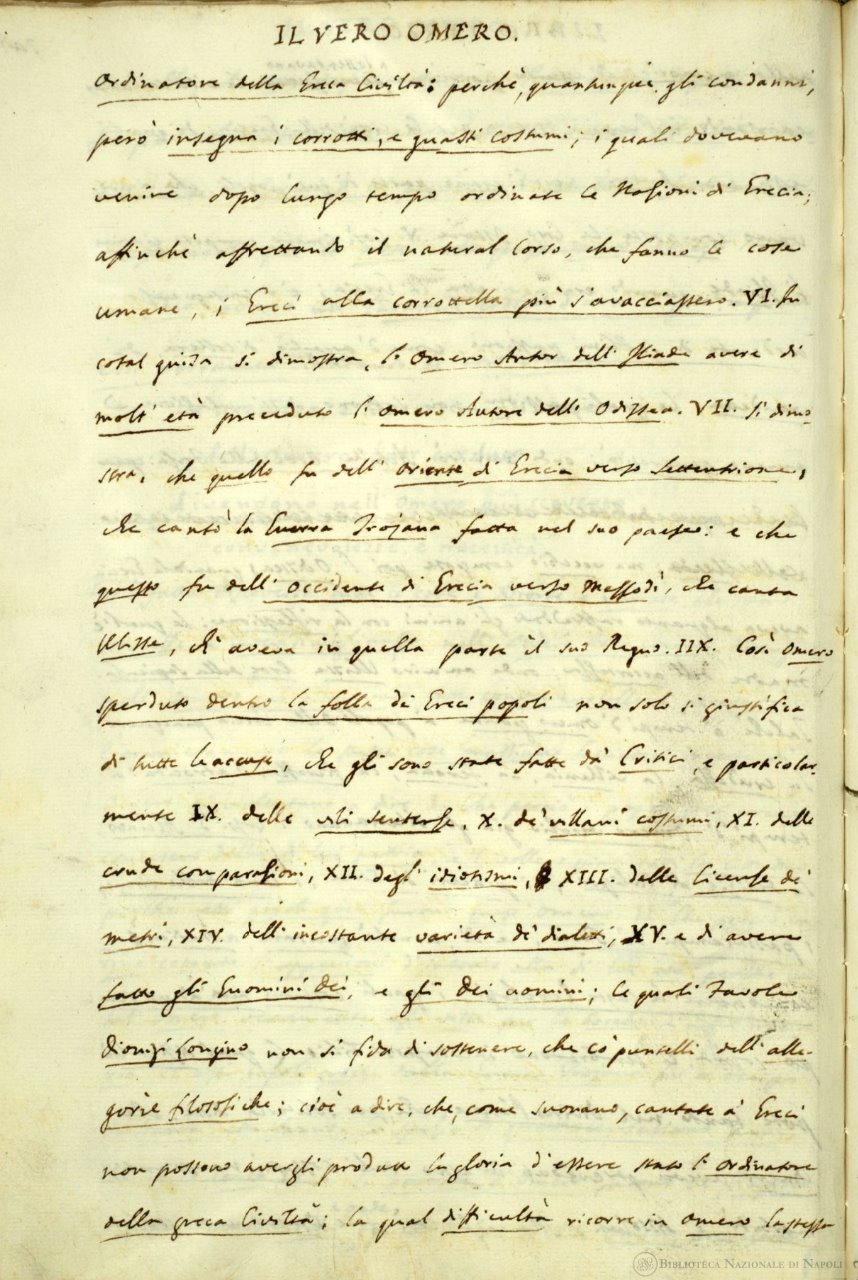 IL VERO OMERO.
Ordinatore della Greca Civiltà: perchè, quantunque gli condanni,
però insegna i corrotti, e guasti costumi; i quali dovevano
venire dopo lungo tempo ordinate le Nazioni di Grecia;
affinchè affrettando il natural corso, che fanno le cose
umane, i Greci alla corrottella più s'avacciassero. VI. In
cotal guisa si dimostra, l'Omero Autor dell'Iliade avere di
molt'età preceduto l'Omero Autore dell'Odissea. VII. Si dimo-
stra, che quello fu dell'Oriente di Grecia verso Settentrione,
che cantò la Guerra Trojana fatta nel suo paese: e che
questo fu dell'Occidente di Grecia verso Mezzodì, che canta
Ulisse, ch'aveva in quella parte il suo Regno. IIX. Così Omero
sperduto dentro la folla de' Greci popoli non solo si giustifica
di tutte le accuse, che gli sono state fatte da' Critici, e particolar-
mente IX. delle vili sentenze, X. de' villani costumi, XI. delle
crude comparazioni, XII. degl'idiotismi, XIII. delle licenze de'
metri, XIV. dell'incostante varietà de' dialetti, XV. e di avere
fatto gli Huomini dei, e gli Dei uomini; le quali Favole
Dionigi Longino non si fida di sostenere, che co' puntelli dell'alle-
gorie filosofiche; cioè a dire, che, come suonano, cantate a' Greci
non possono avergli produtto la gloria d'essere stato l'Ordinatore
della greca Civiltà; la qual difficultà ricorre in Omero la stessa
BIBLIOTECA NAZIONALE DI NAPOLI